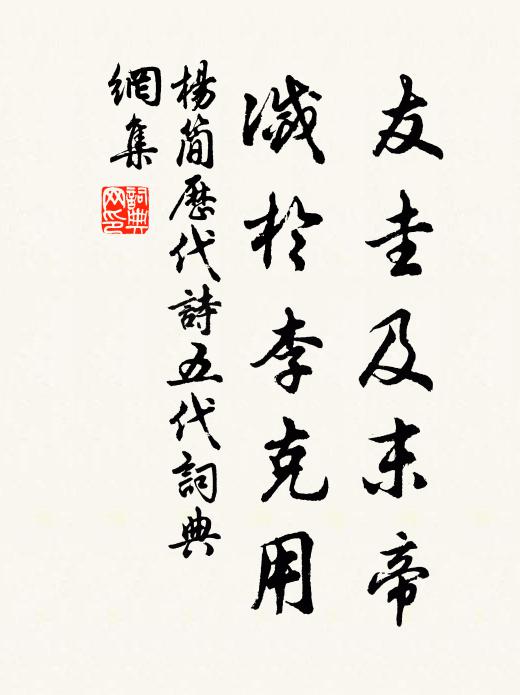 友圭及末帝
滅於李克用
楊簡歷代詩五代詞典
網集
詞典
网印